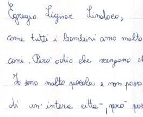 Egregio Signor Sindaco,
come tutti i bambini amo molto
cani. Però odio che vengano
Io sono molto piccola e non posso
di un'intera città - però pos